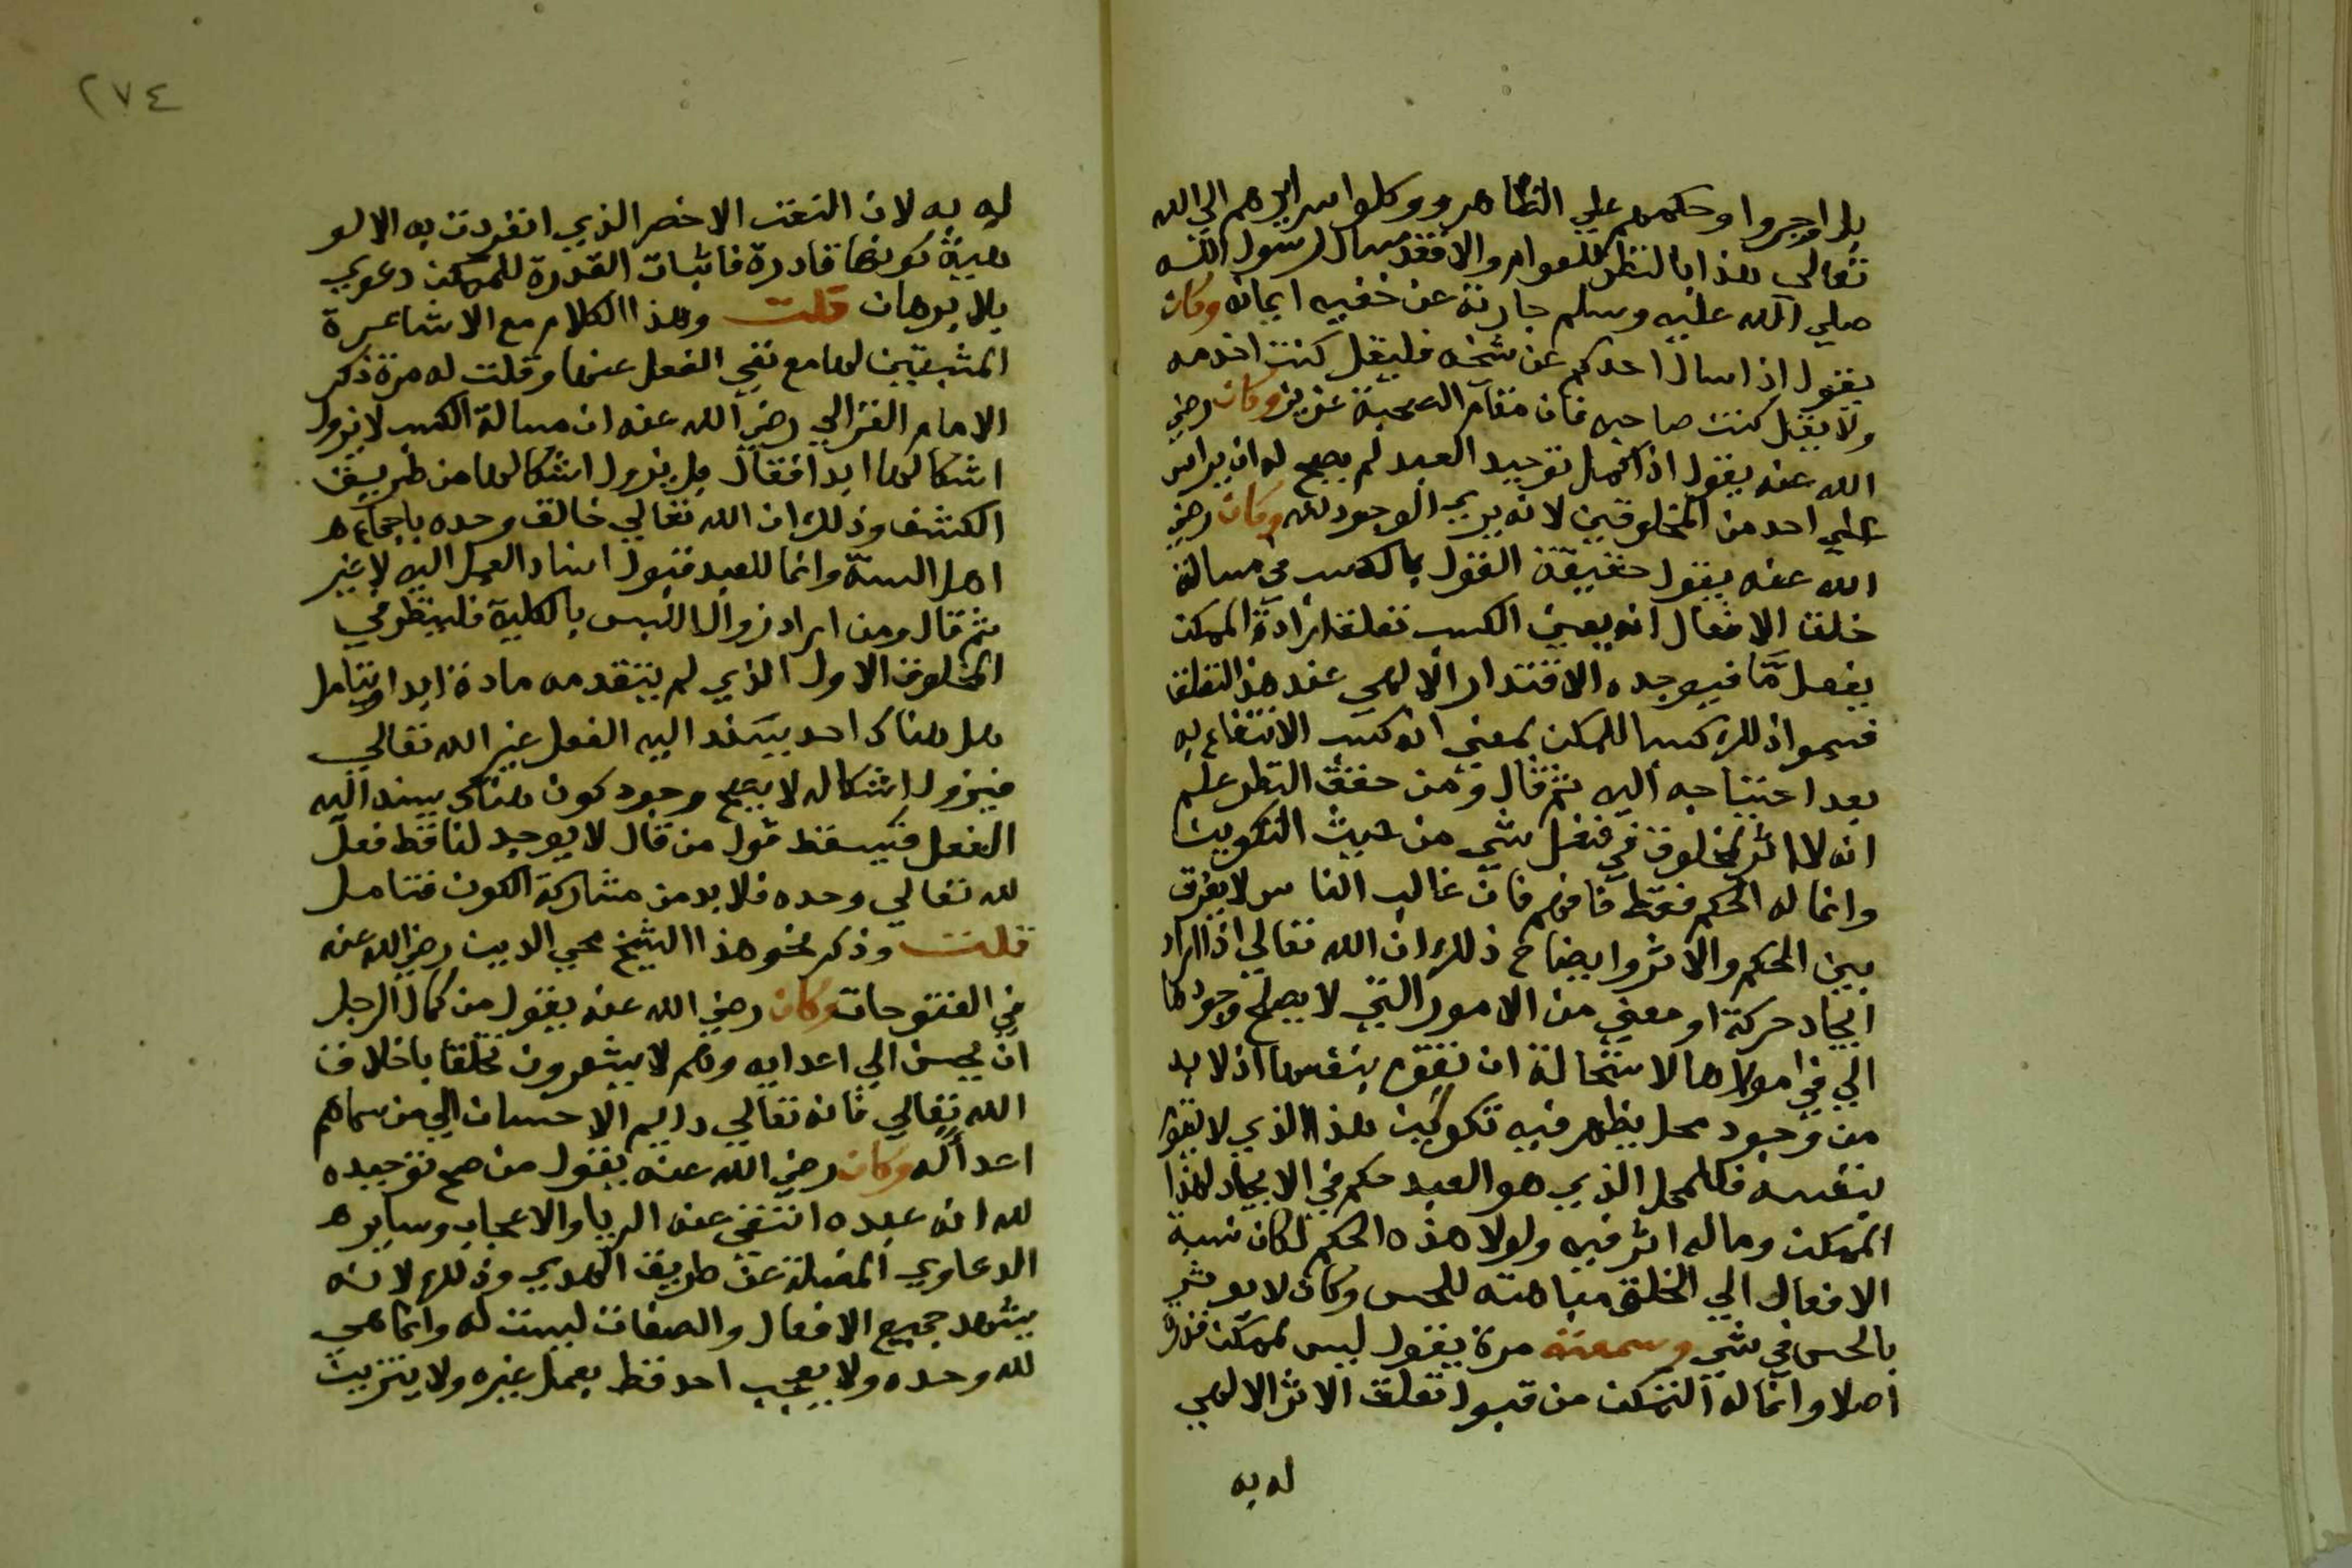 بل اجروا وحكمهم علي الظاهر ووكلوا سرايرهم الي الله
تعالي هذا بالنظر للعوام والا فقد سال رسول الله
صلي الله عليه وسلم حارثة عن حقيقة ايمانه وكان
يقول اذا سال احدكم عن شيخه فليقل كنت اخدمه
ولا يقل كنت صاحبه فان مقام الصحبة عزيز وكان رضي
الله عنه يقول اذا كمل توحيد العبد لم يصح له ان يراس
علي احد من المخلوقين لانه يري الوجود لله وكان رضي
الله عنه يقول حقيقة القول بالكسب في مسالة
خلق الافعال انه يعني الكسب تعلق ارادة الممكن
بفعل ما فيوجده الاقتدار الالهي عند هذا التعلق
فسموا ذلك كسبا للممكن بمعني انه كسب الانتفاع به
بعد احتياجه اليه ثم قال ومن حقق النظر علم
انه لا اثر لمخلوق في فعل شي من حيث التكوين
وانما له الحكم فقط فافهم فان غالب الناس لا يفرق
بين الحكم والاثر وايضاح ذلك ان الله تعالي اذا اراد
ايجاد حركة او معني من الامور التي لا يصح وجودها
الي في مولاها لاستحالة ان تقوم بنفسها اذ لا بد
من وجود محل يظهر فيه تكوين هذا الذي لا يقوم
بنفسه فللمحل الذي هو العبد حكم في الايجاد لهذا
الممكن وماله اثر فيه ولولا هذه الحكم لكان نسبة
الافعال الي الخلق مباهته للحس وكان لا يوثق
بالحس في شي وسمعته مرة يقول ليس لممكن قدرة
اصلا وانما له التمكن من قبول تعلق الاثر الالهي
له به
٢٧٤
له به لان النعت الاخص الذي انفردت به الالو
هية كونها قادرة فاثبات القدرة للممكن دعوي
بلا برهان قلت وهذا الكلام مع الاشاعرة
المثبتين لها مع نفي الفعل عنها وقلت له مرة ذكر
الامام الغزالي رضي الله عنه ان مسالة الكسب لا يزول
اشكالها ابدا فقال بل يزول اشكالها من طريق
الكشف وذلك ان الله تعالي خالق وحده باجماع
اهل السنة وانما للعبد قبول اسناد العمل اليه لا غير
ثم قال ومن اراد زوال اللبس بالكلية فلينظر في
المخلوق الاول الذي لم يتقدمه مادة ابدا ويتامل
هل هناك احد يسند اليه الفعل غير الله تعالي
فيزول اشكاله لا يصح وجود كون هناك يسند اليه
الفعل فيسقط قول من قال لا يوجد لنا قط فعل
لله تعالي وحده فلا بد من مشاركة الكون فتامل
قلت وذكر نحو هذا الشيخ محيي الدين رضي الله عنه
في الفتوحات وكان رضي الله عنه يقول من كمال الرجل
ان يحسن الي اعدايه وهم لا يشعرون تخلقا باخلاق
الله تعالي فانه تعالي دايم الاحسان الي من سماهم
اعداله وكان رضي الله عنه يقول من صح توحيده
لله انه عبده انتفي عنه الريا والاعجاب وساير
الدعاوي المضلة عن طريق الهدي وذلك لانه
يشهد جميع الافعال والصفات ليست له وانما هي
لله وحده ولا يعجب احد قط بعمل غيره ولا يتزين